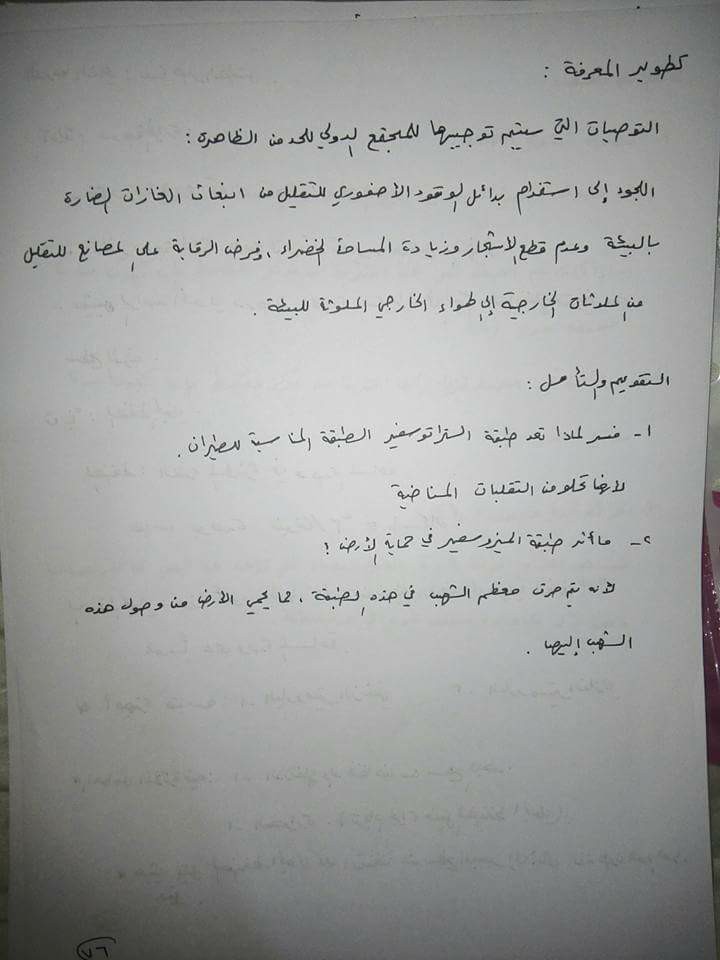 تطوير المعرفة :
التوصيات التي سيتم توجيهها للمجتمع الدولي للحد من الظاهرة :
اللجوء إلى استخدام بدائل الوقود الأحفوري للتقليل من انبعاث الغازات الضارة
بالبيئة وعدم قطع الأشجار وزيادة المساحة الخضراء ، وفرض الرقابة على المصانع للتقليل
من الملوثات الخارجية إلى الهواء الخارجي الملوثة للبيئة .
التقويم والتأمل :
١- فسر لماذا تعد طبقة الستراتوسفير الطبقة المناسبة للطيران .
لأنها تخلو من التقلبات المناخية
٢- ما أثر طبقة الميزوسفير في حماية الأرض ؟
لأنه يتم حرق معظم الشهب في هذه الطبقة ، مما يحمي الأرض من وصول هذه
الشهب إليها .
٧٦